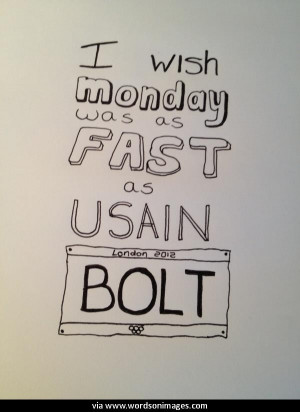 I wish
monday
was as
FAST
as
USAIN
London 2012
BOLT
via www.wordsonimages.com